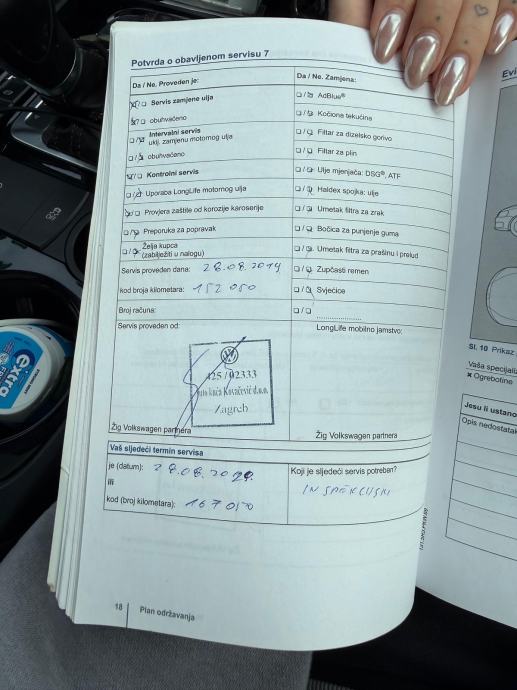 Potvrda o obavljenom servisu 7
Da / Ne. Proveden je:
Servis zamjene ulja
obuhvaćeno
Intervalni servis
uklj. zamjenu motornog ulja
obuhvaćeno
Kontrolni servis
Uporaba LongLife motornog ulja
Provjera zaštite od korozije karoserije
Preporuka za popravak
Želja kupca
(zabilježiti u nalogu)
Servis proveden dana: 28.08.2019
kod broja kilometara: 152 050
Broj računa:
Servis proveden od:
425 / 02333
Auto kuća Kovačević d.o.o.
Zagreb
Žig Volkswagen partnera
Da / Ne. Zamjena:
AdBlue®
Kočiona tekućina
Filtar za dizelsko gorivo
Filtar za plin
Ulje mjenjača: DSG®, ATF
Haldex spojka: ulje
Umetak filtra za zrak
Bočica za punjenje guma
Umetak filtra za prašinu i pelud
Zupčasti remen
Svjećice
LongLife mobilno jamstvo:
Žig Volkswagen partnera
Vaš sljedeći termin servisa
je (datum): 28.08.2020.
ili
kod (broj kilometara): 167 050
Koji je sljedeći servis potreban?
INSPEKCIJSKI
18 Plan održavanja
Evi
Sl. 10 Prikaz
Vaša specijaliz
× Ogrebotine
Jesu li ustano
Opis nedostatak
extra